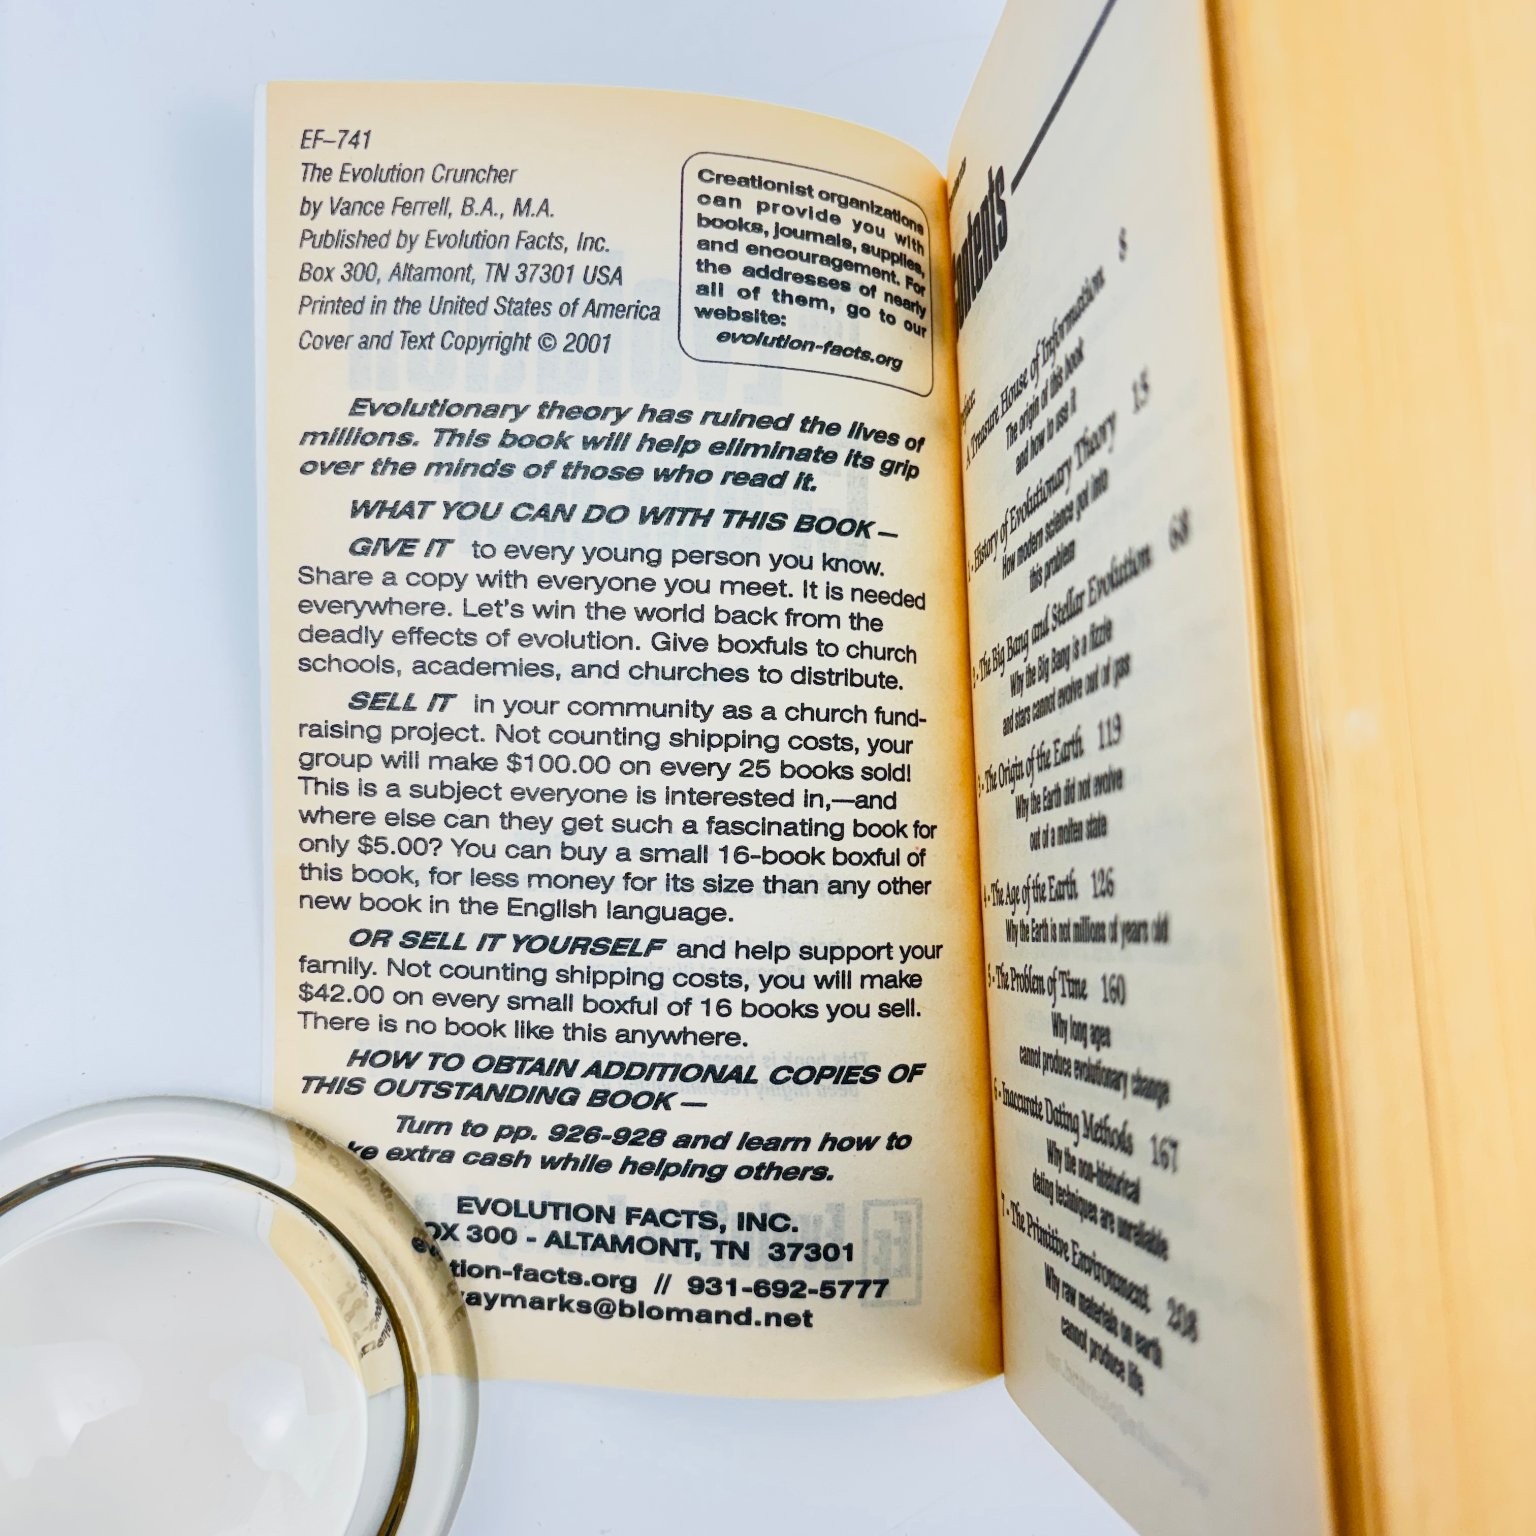 EF–741
The Evolution Cruncher
by Vance Ferrell, B.A., M.A.
Published by Evolution Facts, Inc.
Box 300, Altamont, TN 37301 USA
Printed in the United States of America
Cover and Text Copyright © 2001
Creationist organizations
can provide you with
books, journals, supplies,
and encouragement. For
the addresses of nearly
all of them, go to our
website:
evolution-facts.org
Evolutionary theory has ruined the lives of
millions. This book will help eliminate its grip
over the minds of those who read it.
WHAT YOU CAN DO WITH THIS BOOK—
GIVE IT to every young person you know.
Share a copy with everyone you meet. It is needed
everywhere. Let's win the world back from the
deadly effects of evolution. Give boxfuls to church
schools, academies, and churches to distribute.
SELL IT in your community as a church fund-
raising project. Not counting shipping costs, your
group will make $100.00 on every 25 books sold!
This is a subject everyone is interested in,—and
where else can they get such a fascinating book for
only $5.00? You can buy a small 16-book boxful of
this book, for less money for its size than any other
new book in the English language.
OR SELL IT YOURSELF and help support your
family. Not counting shipping costs, you will make
$42.00 on every small boxful of 16 books you sell.
There is no book like this anywhere.
HOW TO OBTAIN ADDITIONAL COPIES OF
THIS OUTSTANDING BOOK—
Turn to pp. 926-928 and learn how to
ke extra cash while helping others.
EVOLUTION FACTS, INC.
OX 300 - ALTAMONT, TN 37301
tion-facts.org // 931-692-5777
aymarks@blomand.net
ontents
A Treasure House of Information 8
The origin of this book
and how to use it
1 - History of Evolutionary Theory 15
How modern science got into
this problem
2 - The Big Bang and Stellar Evolution 68
Why the Big Bang is a fizzle
and stars cannot evolve out of gas
3 - The Origin of the Earth 119
Why the Earth did not evolve
out of a molten state
4 - The Age of the Earth 126
Why the Earth is not millions of years old
5 - The Problem of Time 160
Why long ages
cannot produce evolutionary change
6 - Inaccurate Dating Methods 167
Why the non-historical
dating techniques are unreliable
7 - The Primitive Environment 208
Why raw materials on earth
cannot produce life